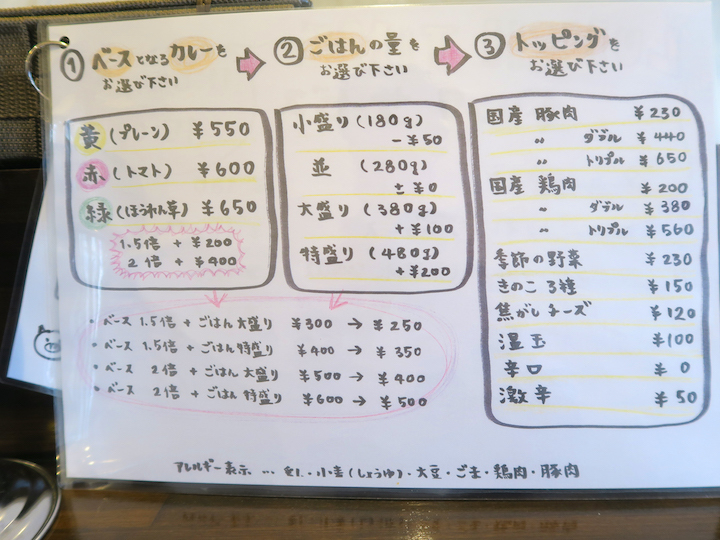 ① ベースとなるカレーを
お選び下さい
② ごはんの量を
お選び下さい
③ トッピングを
お選び下さい
黄(プレーン) ¥550
赤(トマト) ¥600
緑(ほうれん草) ¥650
1.5倍 + ¥200
2倍 + ¥400
小盛り(180g)
-¥50
並 (280g)
±¥0
大盛り(380g)
+¥100
特盛り(480g)
+¥200
国産 豚肉 ¥230
〃 ダブル ¥440
〃 トリプル ¥650
国産 鶏肉 ¥200
〃 ダブル ¥380
〃 トリプル ¥560
季節の野菜 ¥230
きのこ3種 ¥150
焦がしチーズ ¥120
温玉 ¥100
辛口 ¥0
激辛 ¥50
・ベース 1.5倍 + ごはん大盛り ¥300 → ¥250
・ベース 1.5倍 + ごはん特盛り ¥400 → ¥350
・ベース 2倍 + ごはん 大盛り ¥500 → ¥400
・ベース 2倍 + ごはん 特盛り ¥600 → ¥500
アレルギー表示 … 乳・小麦(しょうゆ)・大豆・ごま・鶏肉・豚肉